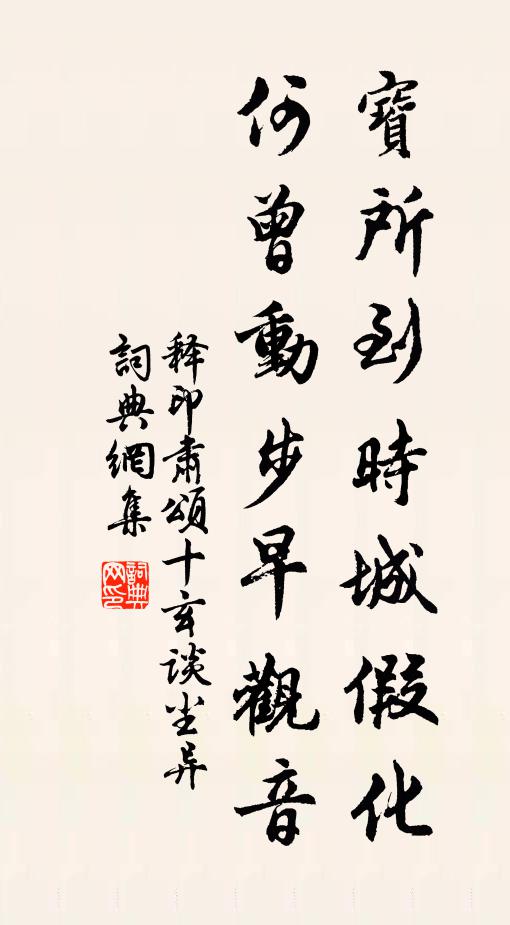 寶所到時城假化
何曾動步早觀音
释印肃頌十玄谈尘异
詞典網集
詞典网印